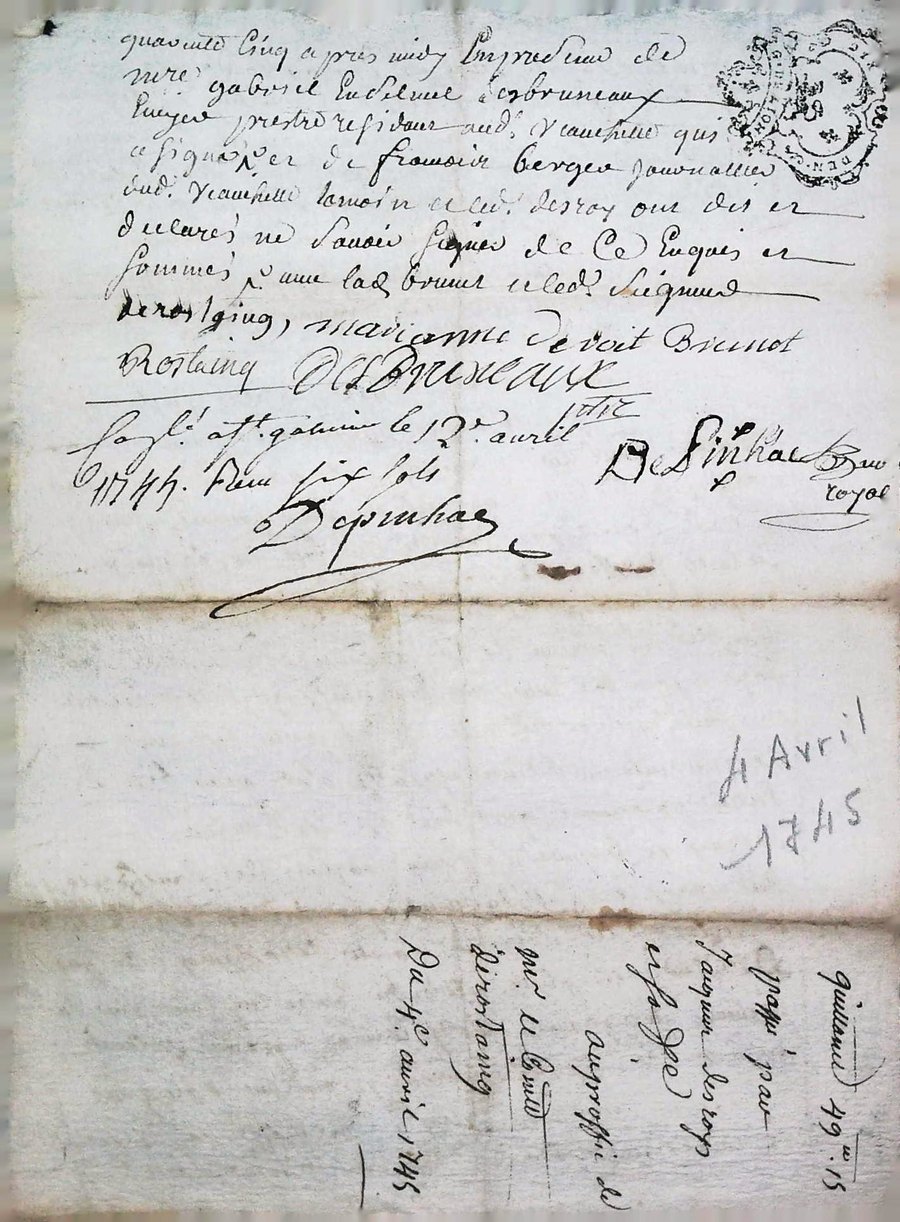 quarante Cinq apres midy En presence de
mre gabriel desbruneaux
prestre residant aud. Veauchette qui
a signé et de francois berger Journallier
dud. Veauchette temoin et led. desroy ont dit et
declarés ne Savoir signer de Ce Enquis et
sommés lad. brunot et led. Seigneur
derostaing, marianne devoit Brunot
Rostaing DesBruneaux
ptre
le 12e avril
1745. Recu six sols
DeSinhac
royal
Depinhac
4 Avril
1745
quittance 49 15
passé par
Jacques desroys
au proffit de
mr. le Comte
derostaing
Du 4e. avril 1745